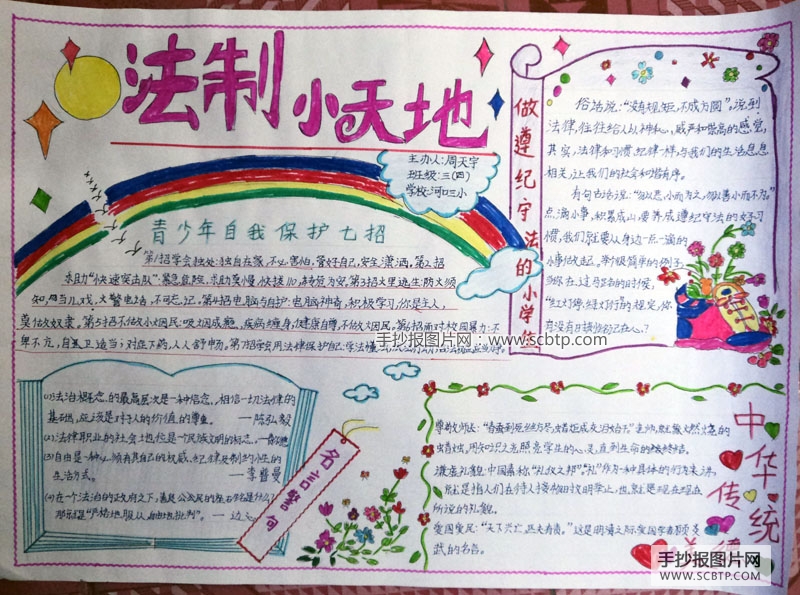 法制小天地
主办人:周天宇
班级:三(四)
学校:河口三小
青少年自我保护七招
第1招学会独处:独自在家,不必害怕,爱好自己,安全潇洒。第2招
求助"快速突击队":紧急危险,求助要慢,快拨110,转危为安。第3招火里逃生:防火须
知,
第4招电脑与自护:电脑神奇,积极学习,你是主人,
莫做奴隶。第5招不做小烟民:吸烟成瘾,疾病缠身,健康自尊,不做火因民。第6招面对校园暴力:不
卑不亢,自卫适当;对症下药,人人舒畅。第7招学会用法律保护自己:学法懂法
做遵纪守法的小学生
俗话说:"没有规矩,不成方圆"。说到
法律,往往给人以神秘、威严和崇高的感觉,
其实,法律和习惯、纪律一样与我们的生活息息
相关,让我们的社会和谐有序。
有句古话说:"勿以恶小而为之,勿以善小而不为。"
点滴小事,积累成山,要养成遵纪守法的好习
惯,我们就要从身边一点一滴的
小事做起。举个极简单的例子,
当你在过马路的时候,
"红灯停,绿灯行"的规定,你
有没有牢记在自己心上?
(1)法治概念的最高层次是一种信念,相信一切法律的
基础,应该是对于人的价值的尊重。 —陈弘毅
(2)法律职业的社会地位是一个民族文明的标志。
(3)自由是一种必须有其自己的权威、纪律及制约性的
生活方式。 —李普曼
(4)在一个法治的政府之下,善良公民的座右铭是什么?
那就是"严格地服从,自由地批判"。—边沁
名言警句
中华传统美德
尊敬师长:"春蚕到死丝方尽,蜡炬成灰泪始干。"老师就像燃烧的
蜡烛,用知识之光照亮学生的心灵,直到生命的最终结。
谦虚礼貌:中国素称"礼仪之邦","礼"作为一种具体的行为来讲,
就是指人们在待人接物时的文明举止,也就是现在
所说的礼貌。
爱国爱民:"天下兴亡,匹夫有责。"这是明清之际爱国学者顾炎
武的名言。
手抄报图片网:www.scbtp.com
手抄报图片网
WWW.SCBTP.COM